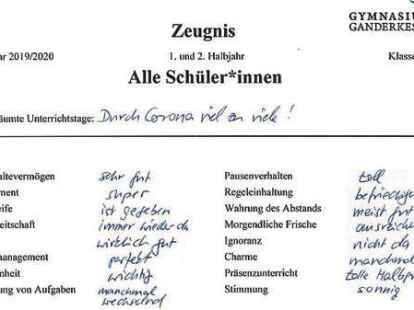 GYMNASIU
GANDERKES
Zeugnis
ar 2019/2020 1. und 2. Halbjahr Klasse
Alle Schüler*innen
äumte Unterrichtstage: Durch Corona viel zu viele!
altevermögen sehr gut Pausenverhalten toll
ment super Regeleinhaltung befriedigen
eife ist gegeben Wahrung des Abstands meist gut
eitschaft immer wieder da Morgendliche Frische ausreich
wirklich gut Ignoranz nicht da
management perfekt Charme manchmal
nheit wichtig Präsenzunterricht tolle Halbgr
ung von Aufgaben manchmal Stimmung sonnig
wechselnd